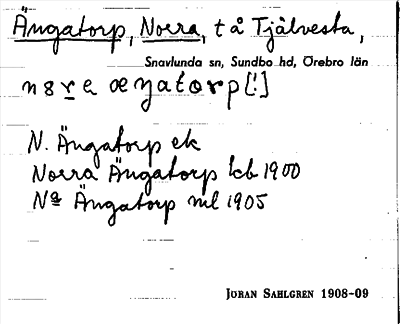 Ängatorp, Norra, t å Tjälvesta,
Snavlunda sn, Sundbo hd, Örebro län
N. Ängatorp ek
Norra Ängatorp kb 1900
Nª Ängatorp ml 1905
JÖRAN SAHLGREN 1908-09